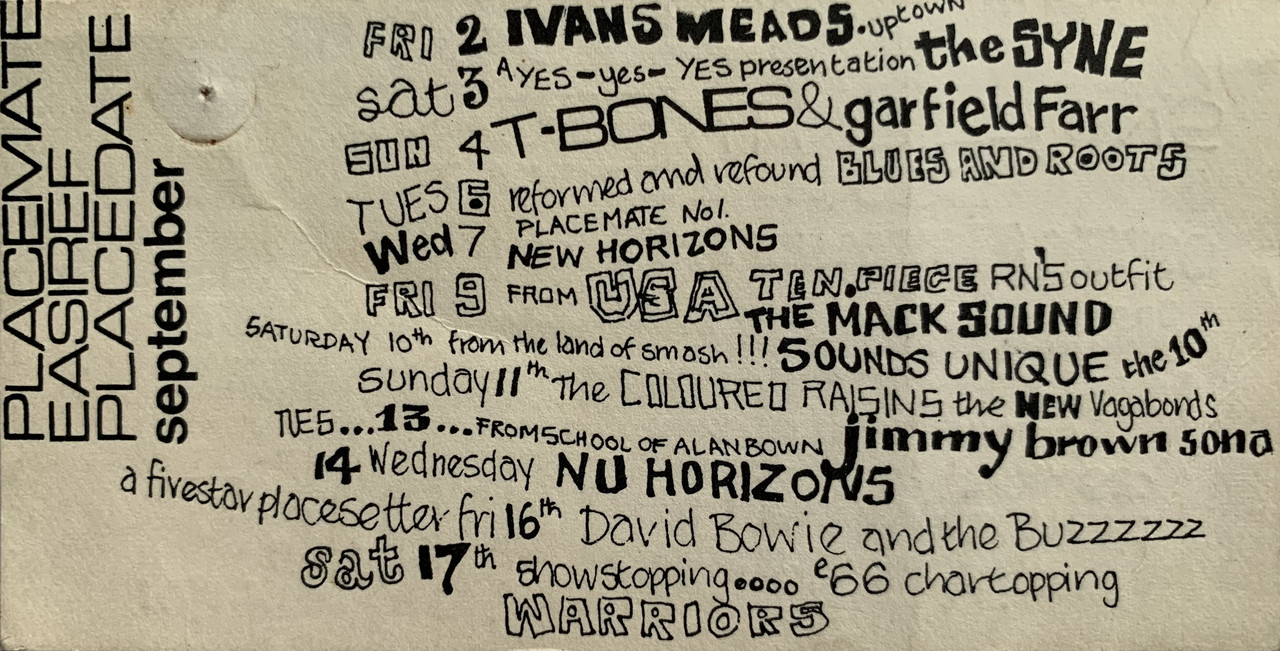 PLACEMATE
EASIREF
PLACEDATE
september
FRI 2 IVANS MEADS.uptown
sat 3 A YES-yes- YES presentation the SYNE
SUN 4 T-BONES & garfield Farr
TUES 6 reformed and refound BLUES AND ROOTS
Wed 7 PLACEMATE No1.
NEW HORIZONS
FRI 9 FROM USA TEN.PIECE RN'S outfit
THE MACK SOUND
SATURDAY 10th from the land of smash!!! SOUNDS UNIQUE the 10th
sunday 11th the COLOURED RAISINS the NEW Vagabonds
TUES...13...FROM SCHOOL OF ALAN BOWN jimmy brown sond
14 Wednesday NU HORIZONS
a fivestar placesetter fri 16th David Bowie and the Buzzzzzz
sat 17th showstopping.... e66 chartopping
WARRIORS